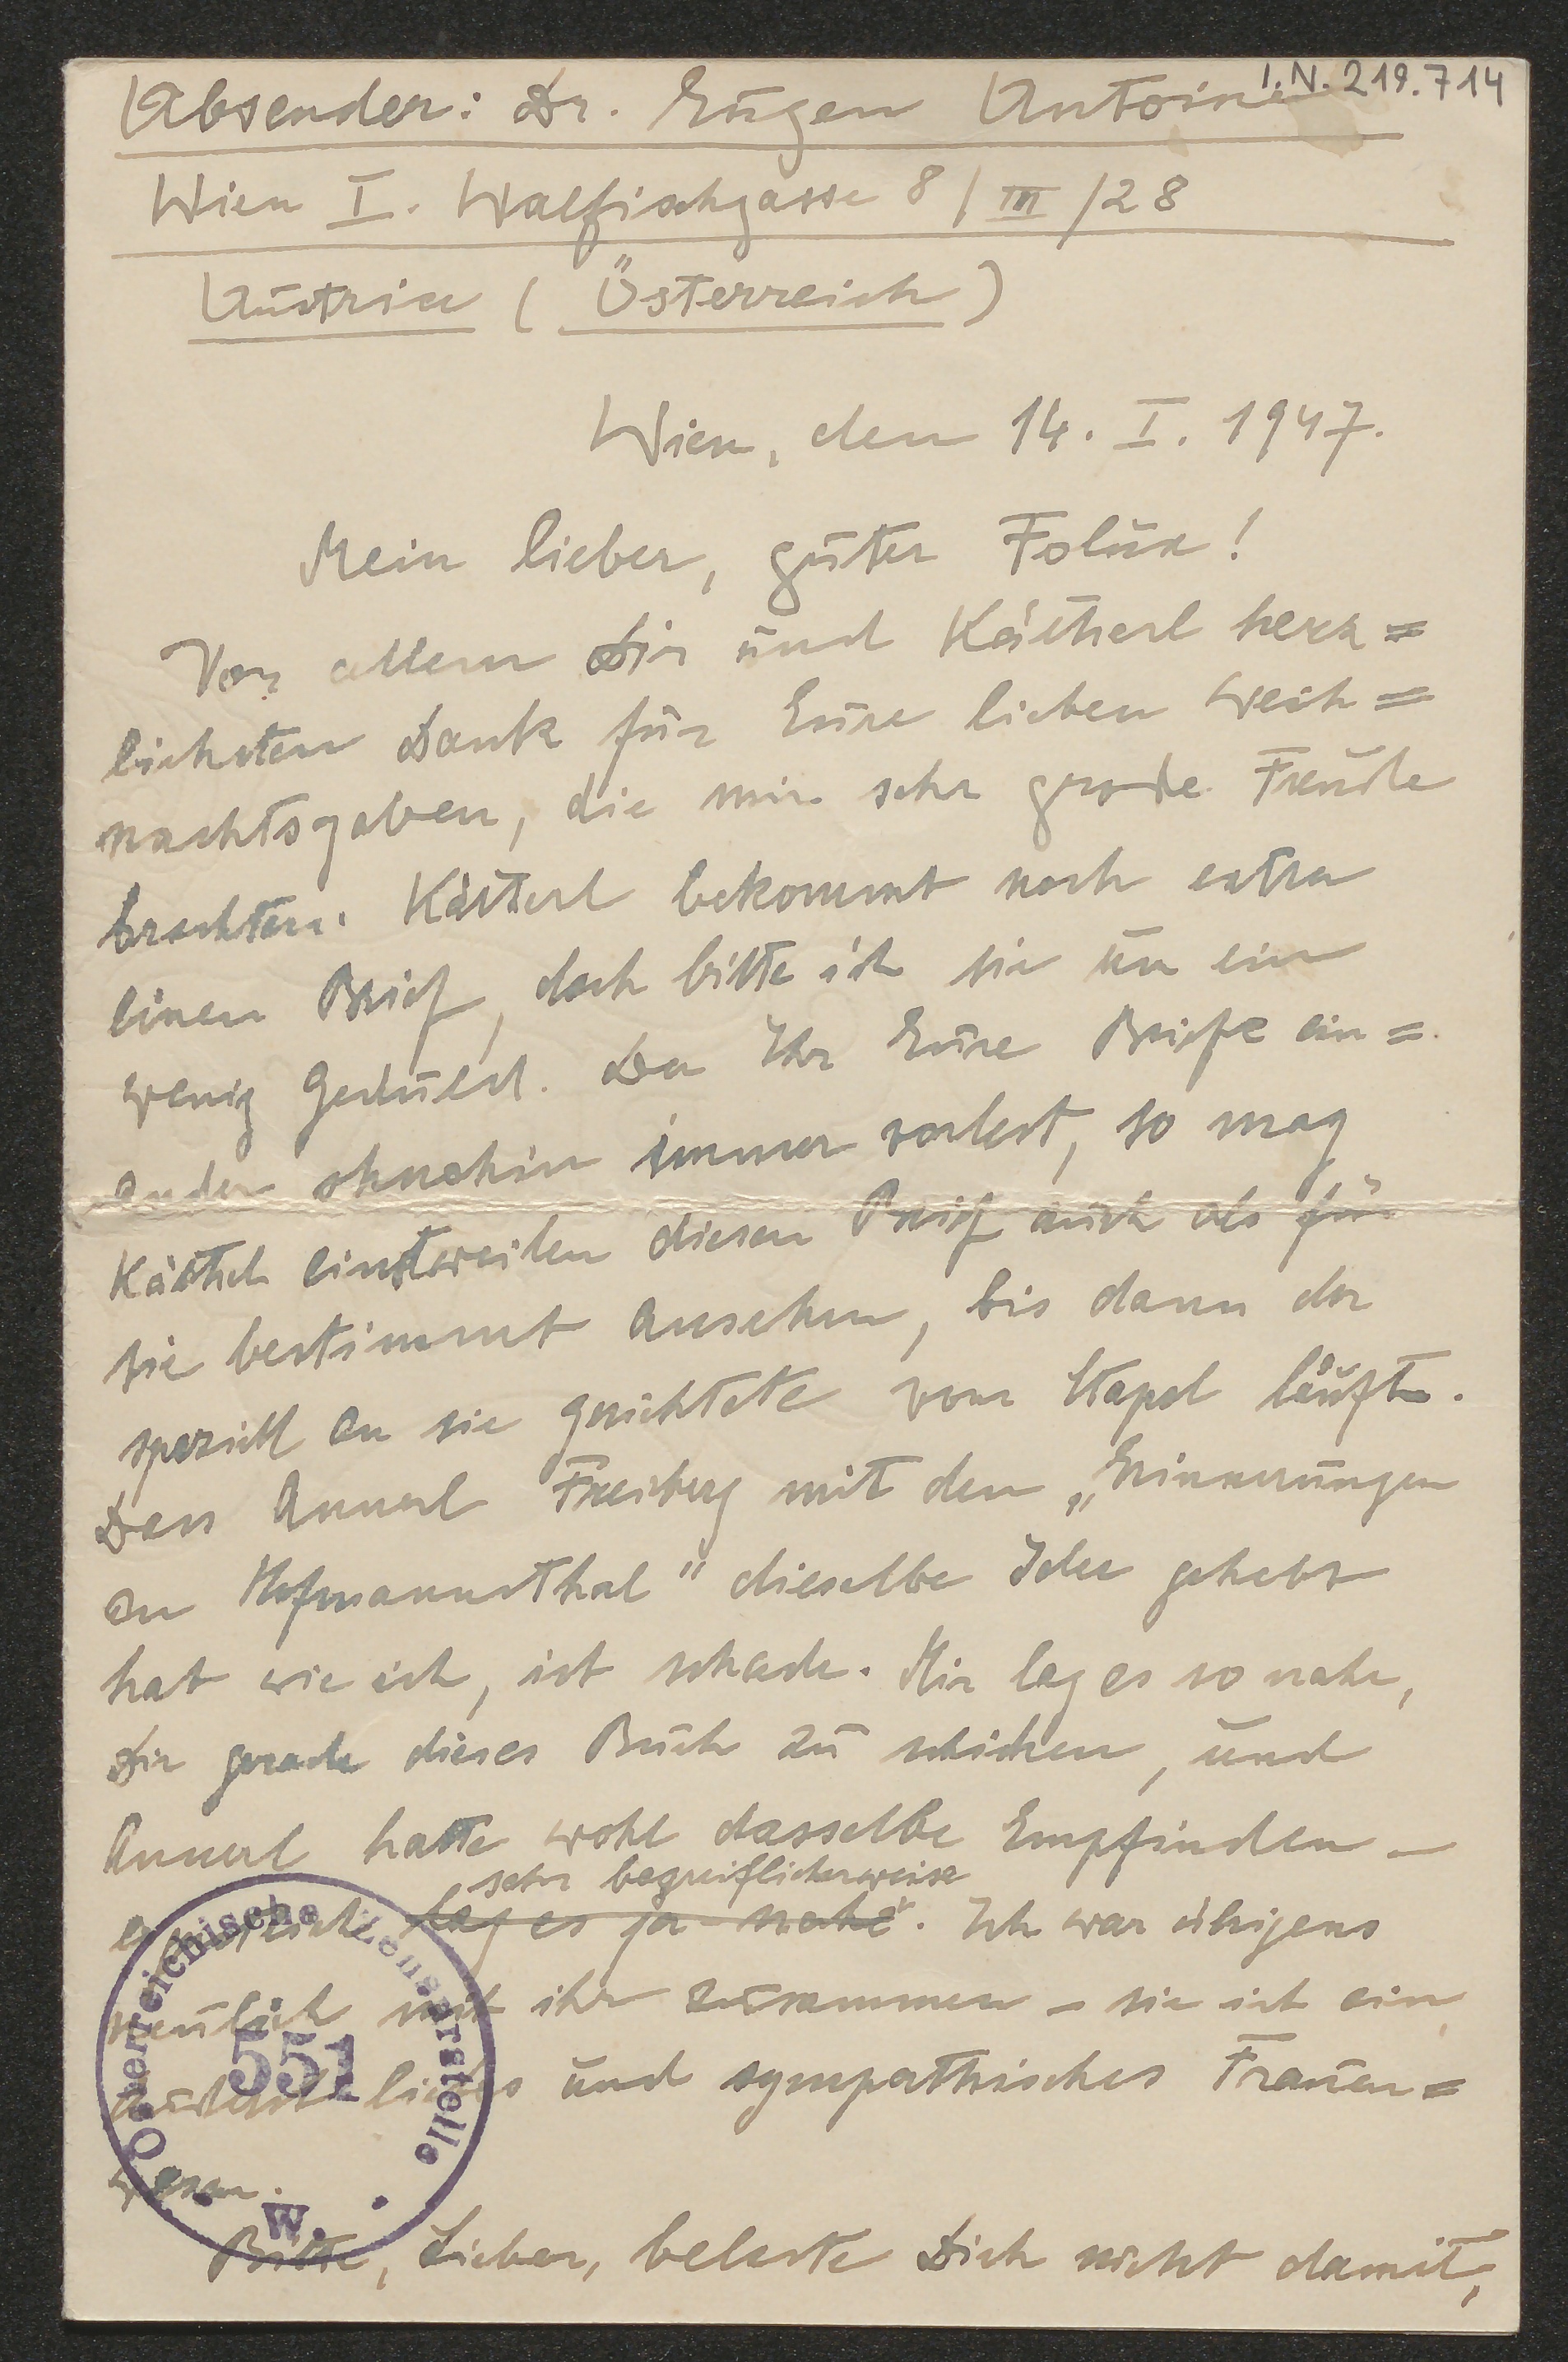 I.N. 219.714
Absender: Dr. Eugen Antoine
Wien I. Walfischgasse 8/III/28
Austria (Österreich)
Wien, den 14. I. 1947.
Mein lieber, guter
Vor allem Dir und Kätherl herz=
lichsten Dank für Eure lieben Weih=
nachtsgaben, die mir sehr große Freude
brachten. Kätherl bekommt noch extra
einen Brief, doch bitte ich sie um ein
wenig Geduld. Da Ihr Eure Briefe ein=
ander ohnehin immer vorlest, so mag
Kätherl einstweilen diesen Brief auch als für
sie bestimmt ansehen, bis dann der
speziell an sie gerichtete vom Stapel läuft.
Dass Annerl Freiberg mit den „Erinnerungen
an Hofmannsthal" dieselbe Idee gehabt
hat wie ich, ist schade. Mir lag es so nahe,
Dir gerade dieses Buch zu schicken, und
Annerl hatte wohl dasselbe Empfinden –
sehr begreiflicherweise
lag es ja nahe. Ich war übrigens
neulich mit ihr zusammen – sie ist ein
liebes und sympathisches Frauen=
wesen.
Bitte, Lieber, belaste Dich nicht damit,
Österreichische Zensurstelle
551
W.